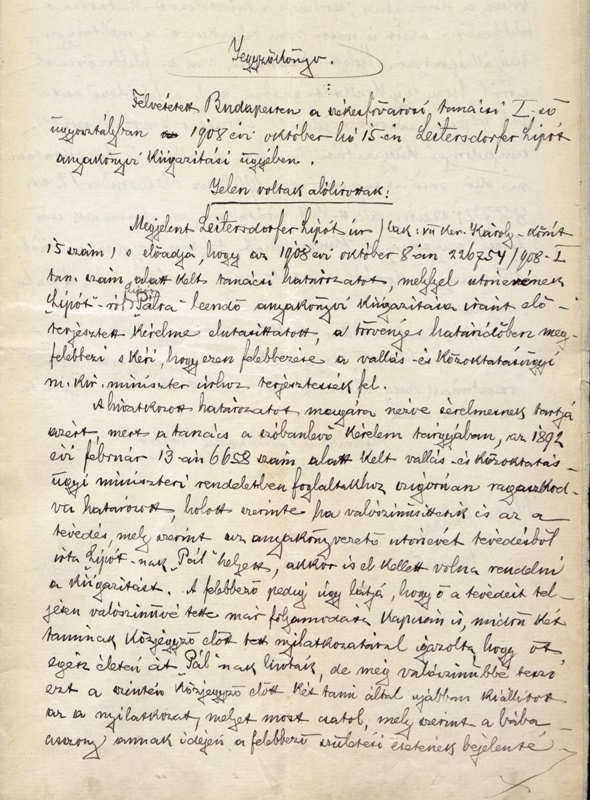 Jegyzőkönyv.
Felvétetett Budapesten a székesfővárosi tanácsi I-ső
ügyosztályban 1908 évi október hó 15-én Leitersdorfer Lipót
anyakönyvi kiigazítási ügyében.
Jelen voltak alólirottak:
Megjelent Leitersdorfer Lipót úr / lak: VII ker. Károly-körút
15 szám / s előadja, hogy az 1908 évi október 8-án 226754/1908-I
tan. szám alatt kelt tanácsi határozatot, melylyel utónevének
"Lipót"-ról "Pálra" leendő anyakönyvi kiigazítása iránt elő-
terjesztett kérelme elutasíttatott, a törvényes határidőben meg-
felebbezi s kéri, hogy ezen felebbezése a vallás-és közoktatásügyi
m. kir. miniszter úrhoz terjesztessék fel.
A hivatkozott határozatot magára nézve sérelmesnek tartja
azért, mert a tanács a szóbanlevő kérelem tárgyában, az 1892
évi február 13-án 6658 szám alatt kelt vallás-és közoktatás-
ügyi miniszteri rendeletben foglaltakhoz szigorúan ragaszkod-
va határozott, holott szerinte ha valószinüsíttetik is az a
tévedés, mely szerint az anyakönyvvezető utónevét tévedésből
írta Lipót-nak "Pál" helyett, akkor is el kellett volna rendelni
a kiigazítást. A felebbező pedig úgy látja, hogy ő a tévedést tel-
jesen valószinűvé tette már folyamodása kapcsán is, midőn két
tanúnak közjegyző előtt tett nyilatkozatával igazolta, hogy őt
egész életén át "Pál"nak hívták, de még valószinűbbé teszi
ezt a szintén közjegyző előtt két tanú által ujabban kiállított
az a nyilatkozat, melyet most csatol, mely szerint a bába
asszony annak idején a felebbező születési esetének bejelenté-